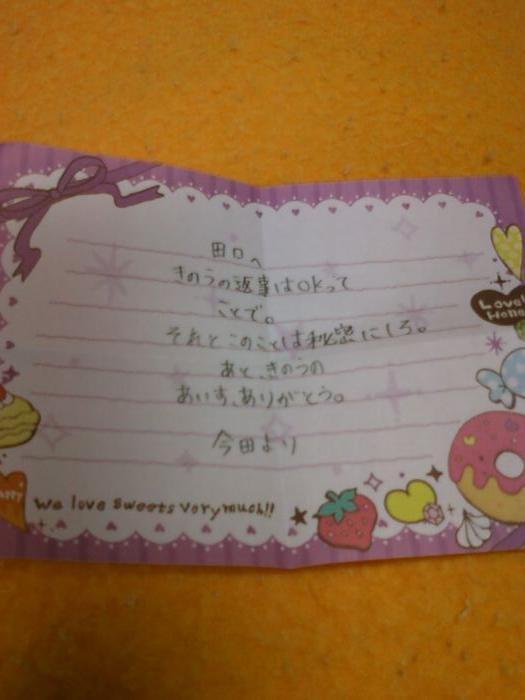 田口へ
きのうの返事はOKって
ことで。
それとこのことは秘密にしろ。
あと、きのうの
あいす、ありがとう。
今田より
Lovely
Happy
We love sweets very much!!